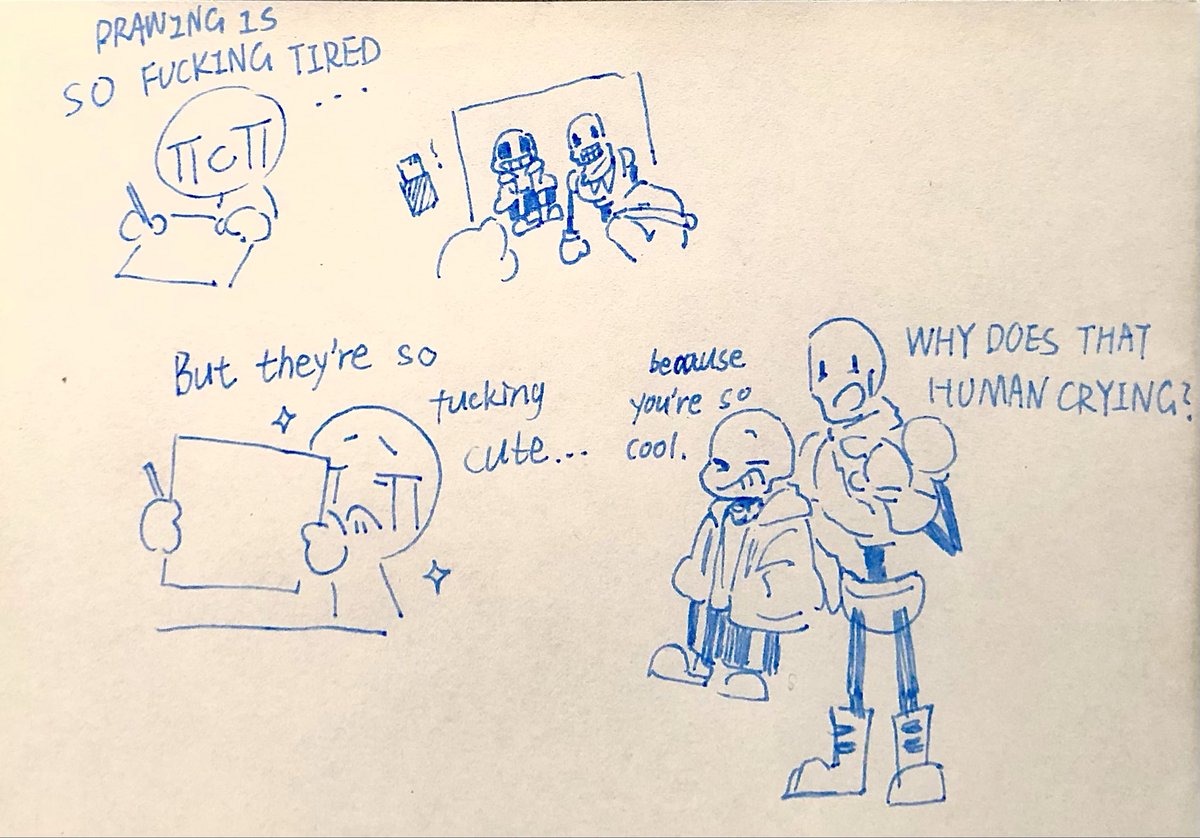 DRAWING IS
SO FUCKING TIRED
...
But they're so
fucking
cute...
because
you're so
cool.
WHY DOES THAT
HUMAN CRYING?